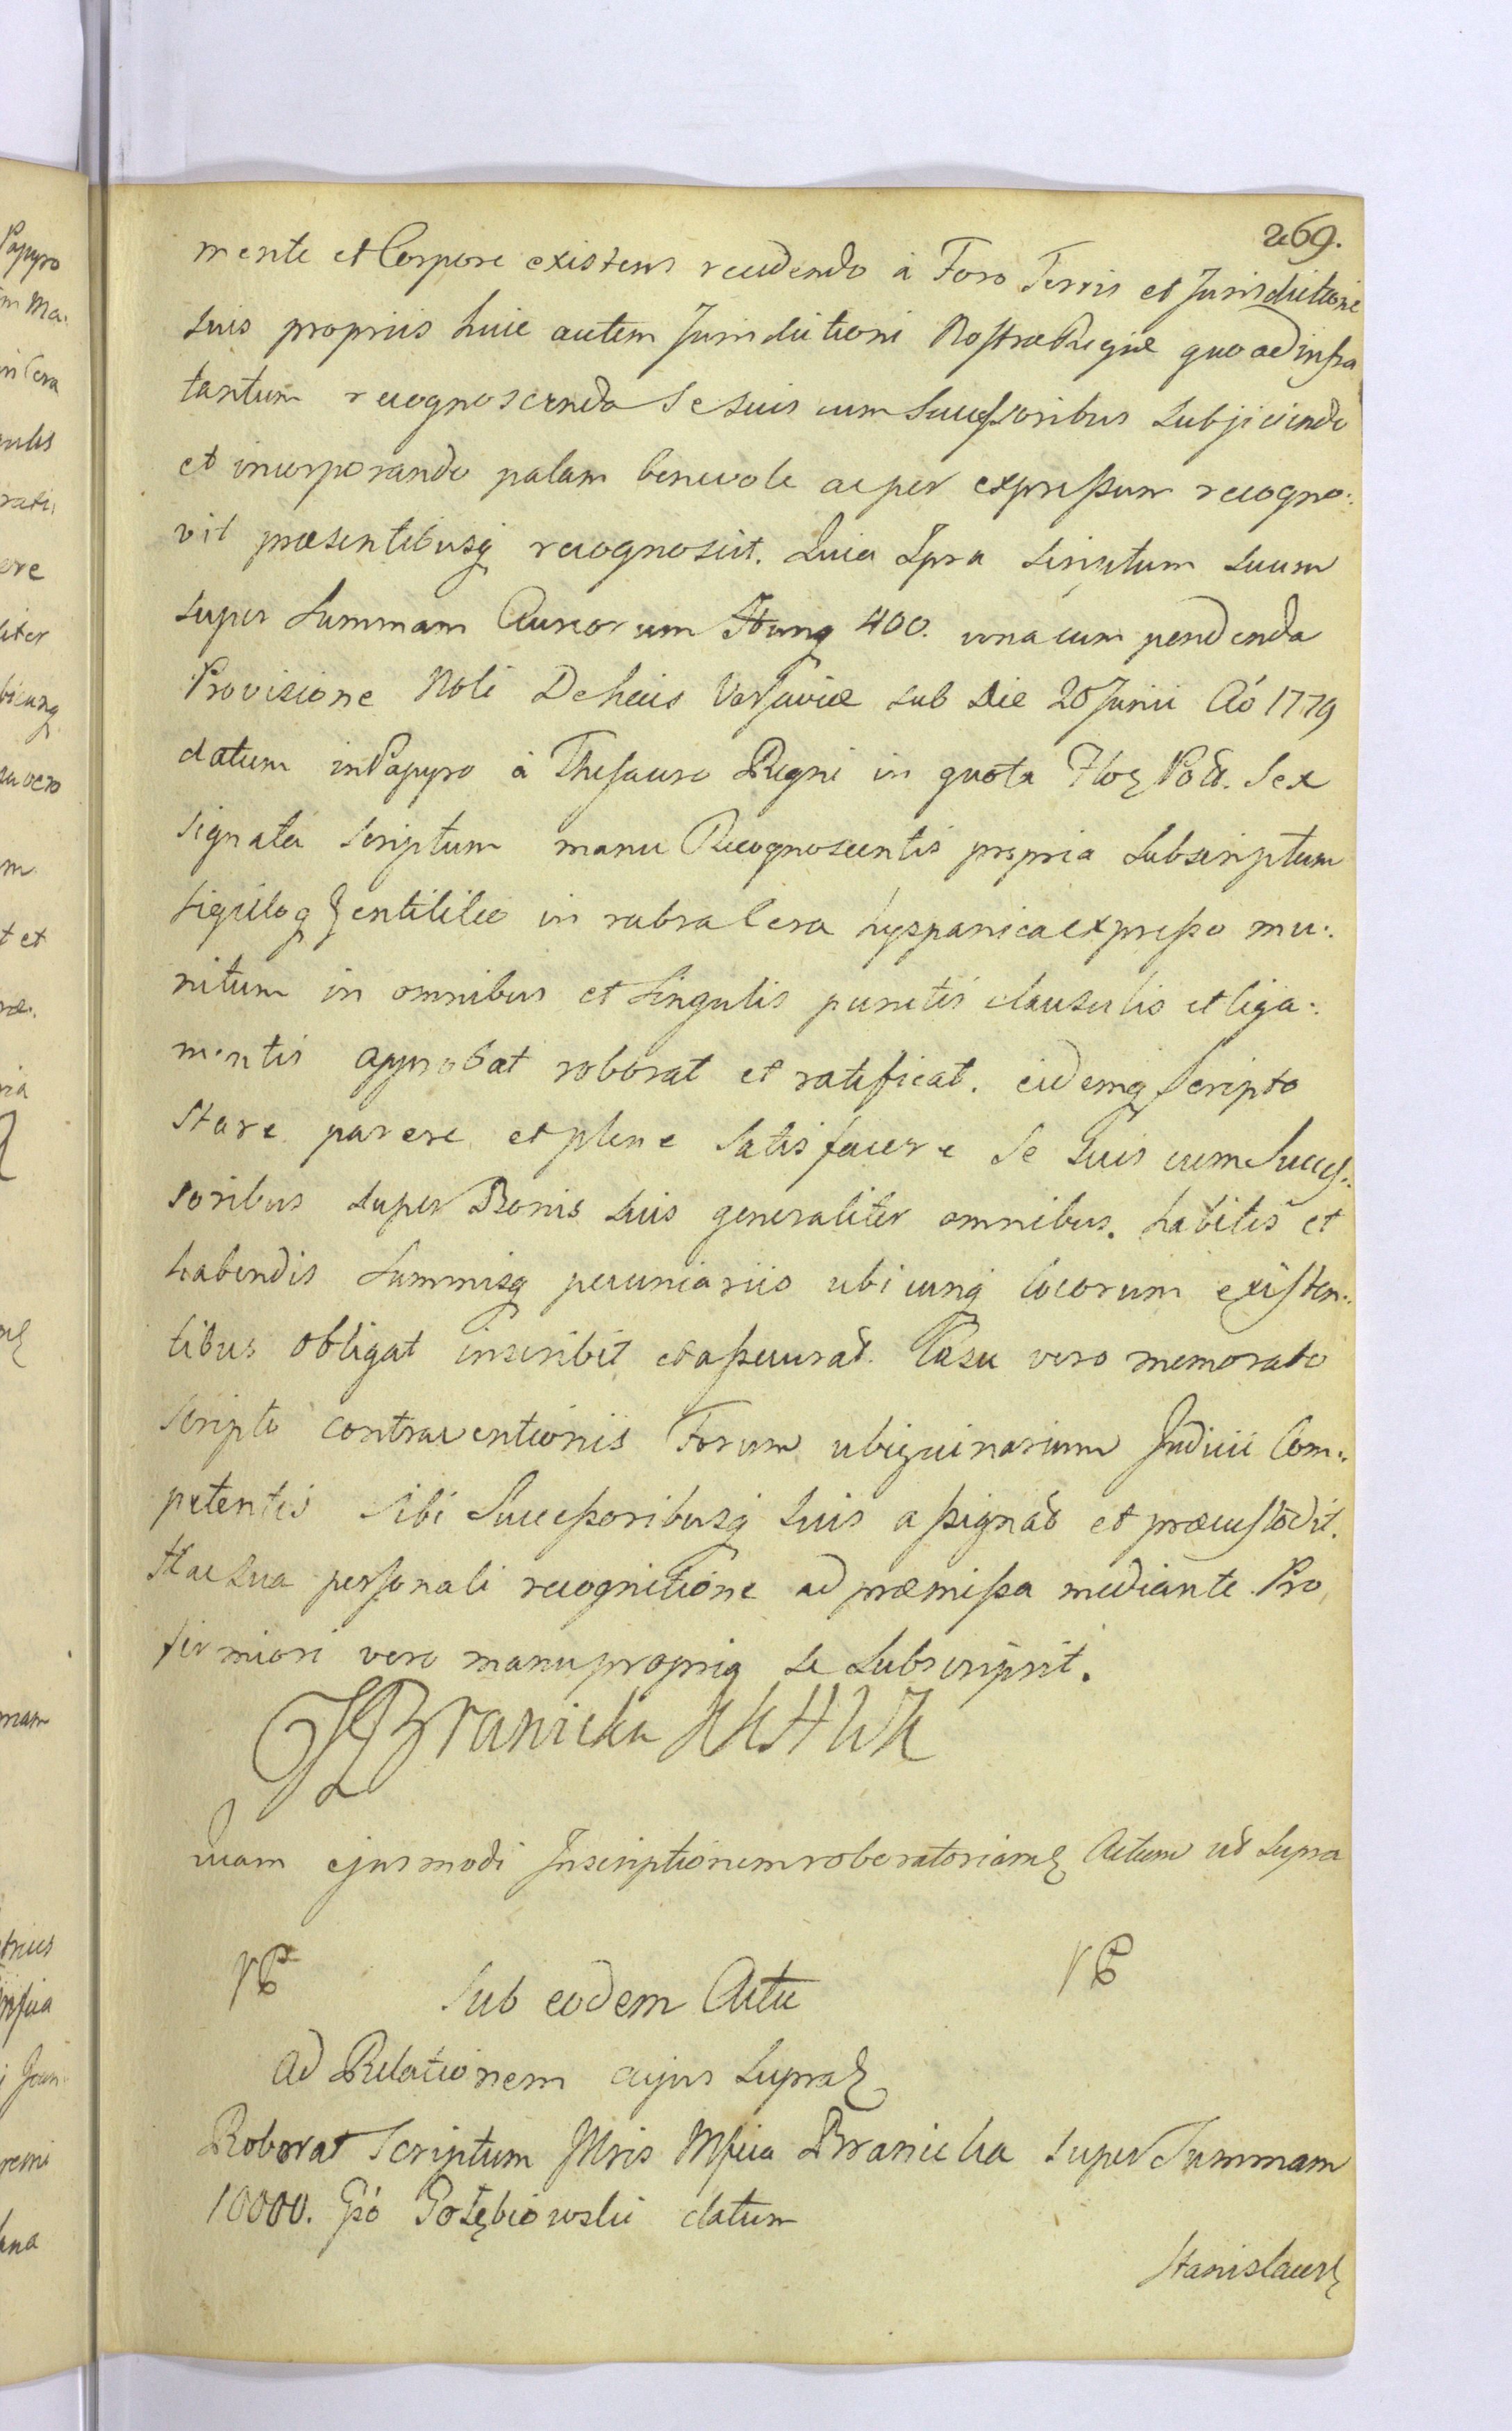 269.
mente et Corpore existens recedendo à Foro Terris et Jurisdictione
suis propriis huic autem Jurisdictioni Nostræ Regiæ quo ad infra
tantum recognoscenda Se suis cum Successoribus subjiciendo
et incorporando palam benevole ac per expressum recogno:
vit præsentibusq recognoscit. Quia Ipsa Scriptum suum
super Summam Aureorum Hung 400. una cum pendenda
Provisione Noli Dehais Varsaviæ sub Die 20 Junii Aó 1779
datum in Papyro à Thesauro Regni in quota Flor Pol. Sex
signata scriptum manu Recognoscentis propria subscriptum
sigilloq Gentilitio in rubra Cera hyspanica expresso mu:
nitum in omnibus et singulis punctis clausulis et liga:
mentis approbat roborat et ratificat. eidemq Scripto
stare parere et plene satisfacere Se Suis cum Succes:
soribus super Bonis suis generaliter omnibus. habitis et
habendis Summisq pecuniariis ubicunq locorum existen:
tibus obligat inscribit et assecurat. Casu vero memorato
scripto contraventionis Forum ubiquinarium Judicii Com:
petentis sibi Successoribusq suis assignat et præcustodit.
Hac sua personali recognitione ad præmissa mediante. Pro
firmiori vero manu propria se subscripsit.
Branicka
quam ejusmodi Inscriptionem roboratoriam Actum ut supra
Sub eodem Actu
Ad Relationem cujus supra
Roborat Scriptum Mfica Branicka super Summam
10000. Gso Gołębiowski datum
Stanislaus